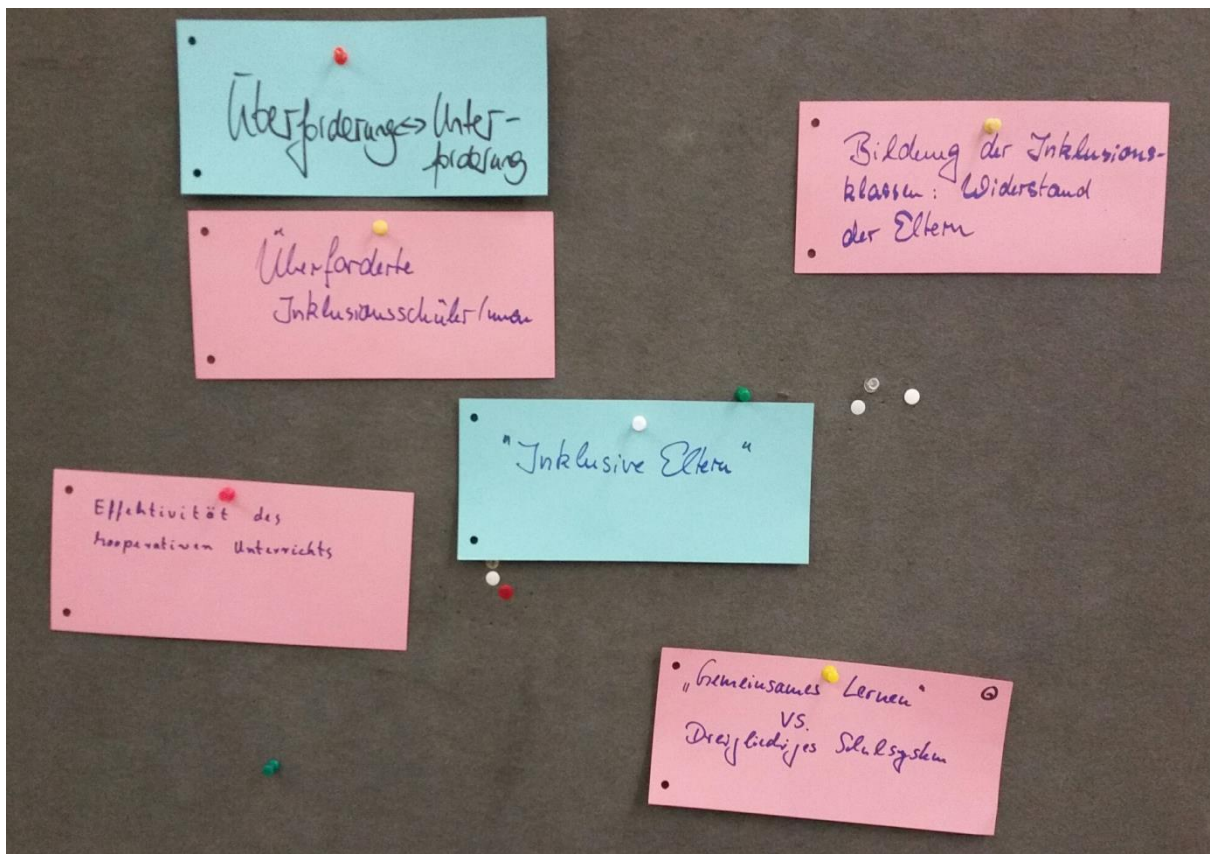 Überforderung<->Unter-
forderung
Überforderte
Inklusionsschüler/innen
Bildung der Inklusions-
klassen: Widerstand
der Eltern
"Inklusive Eltern"
Effektivität des
kooperativen Unterrichts
„Gemeinsames Lernen"
vs.
Dreigliedriges Schulsystem